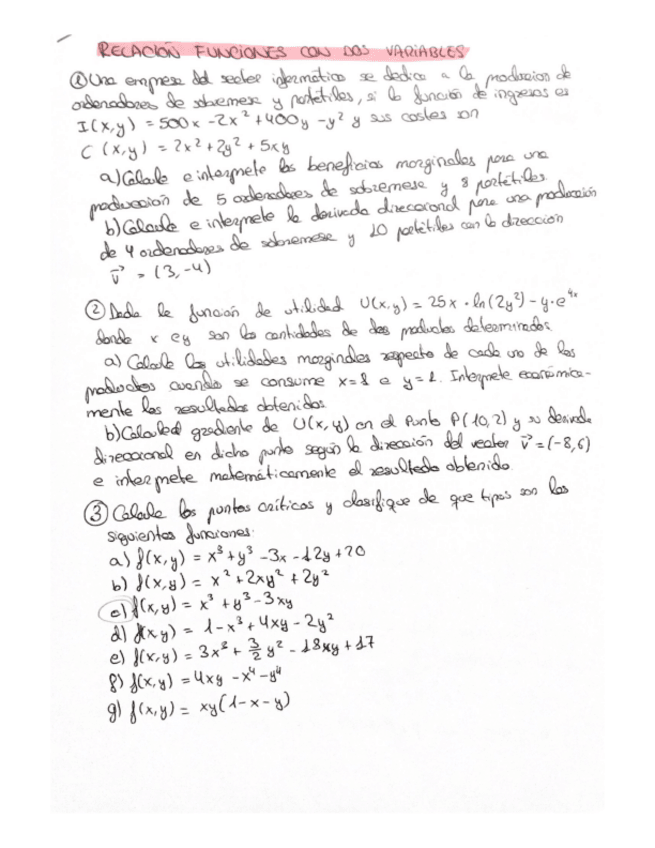 RELACIÓN FUNCIONES CON DOS VARIABLES
① Una empresa del sector informático se dedica a la producción de
ordenadores de sobremesa y portátiles, si la función de ingresos es
I(x,y) = 500x - 2x² + 400y - y² y sus costes son
C (x,y) = 2x² + 2y² + 5xy
a) Calcule e interprete los beneficios marginales para una
producción de 5 ordenadores de sobremesa y 8 portátiles.
b) Calcule e interprete la derivada direccional para una producción
de 4 ordenadores de sobremesa y 10 portátiles con la dirección
v⃗ = (3,-4)
② Dada la función de utilidad U(x,y) = 25x · ln(2y²) - y·e⁴ˣ
donde x e y son las cantidades de dos productos determinados.
a) Calcule las utilidades marginales respecto de cada uno de los
productos cuando se consume x=1 e y=1. Interprete económica-
mente los resultados obtenidos.
b) Calcule el gradiente de U(x,y) en el Punto P(10,2) y su derivada
direccional en dicho punto según la dirección del vector v⃗ = (-8,6)
e interprete matemáticamente el resultado obtenido.
③ Calcule los puntos críticos y clasifique de que tipos son las
siguientes funciones:
a) f(x,y) = x³ + y³ - 3x - 12y + 20
b) f(x,y) = x² + 2xy² + 2y²
c) f(x,y) = x³ + y³ - 3xy
d) f(x,y) = 1 - x³ + 4xy - 2y²
e) f(x,y) = 3x³ + 3/2 y² - 18xy + 17
f) f(x,y) = 4xy - x⁴ - y⁴
g) f(x,y) = xy(1-x-y)